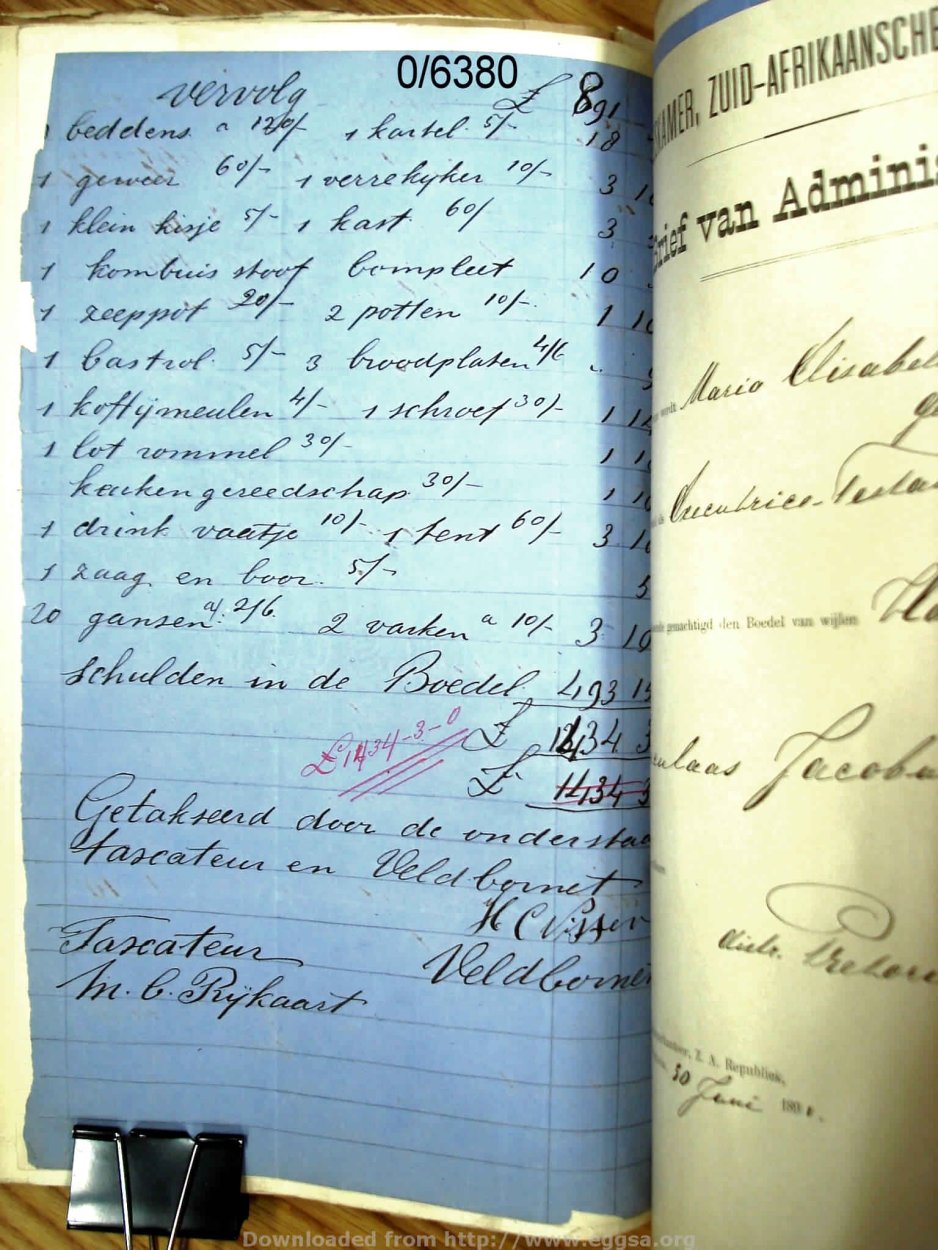 0/6380
vervolg £ 891
beddens a 120/- 1 kartel 5/- 18
1 geweer 60/- 1 verrekyker 10/- 3 10
1 klein kisje 5/- 1 kast 60/ 3
1 kombuis stoof Compleet 10
1 zeeppot 20/- 2 potten 10/- 1 10
1 Castrol 5/- 3 broodplaten 4/6 " 9
1 koffijmeulen 4/- 1 schroef 30/- 1 14
1 lot rommel 30/- 1 1
keuken gereedschap 30/- 1 10
1 drink vaatje 10/- 1 tent 60/- 3 10
1 zaag en boor 5/- 5
20 gansen a 2/6 2 varken a 10/- 3 10
Schulden in de Boedel 493 15
£1434-3-0 £ 1434 3
£ 1434 3
Getakseerd door de onderstaa
taxcateur en Veld Cornet
H C Visser
Taxcateur Veld Cornet
M. C. Rijkaart
KAMER, ZUID-AFRIKAANSCHE
Brief van Adminis
wordt Maria Elisabe
Executrice-Testa
gemachtigd den Boedel van wijlen
laas Jacobu
distr. Pretori
Z. A. Republiek,
30 Juni 189
Downloaded from http://www.eggsa.org